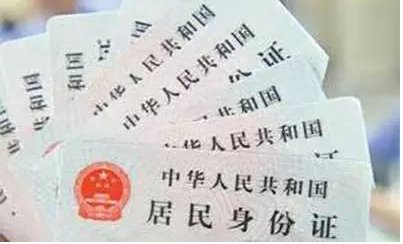 中华人民共和国
中华人民共和国
中华人民共和国
中华人民共和国
中华人民共和国
居民身份证